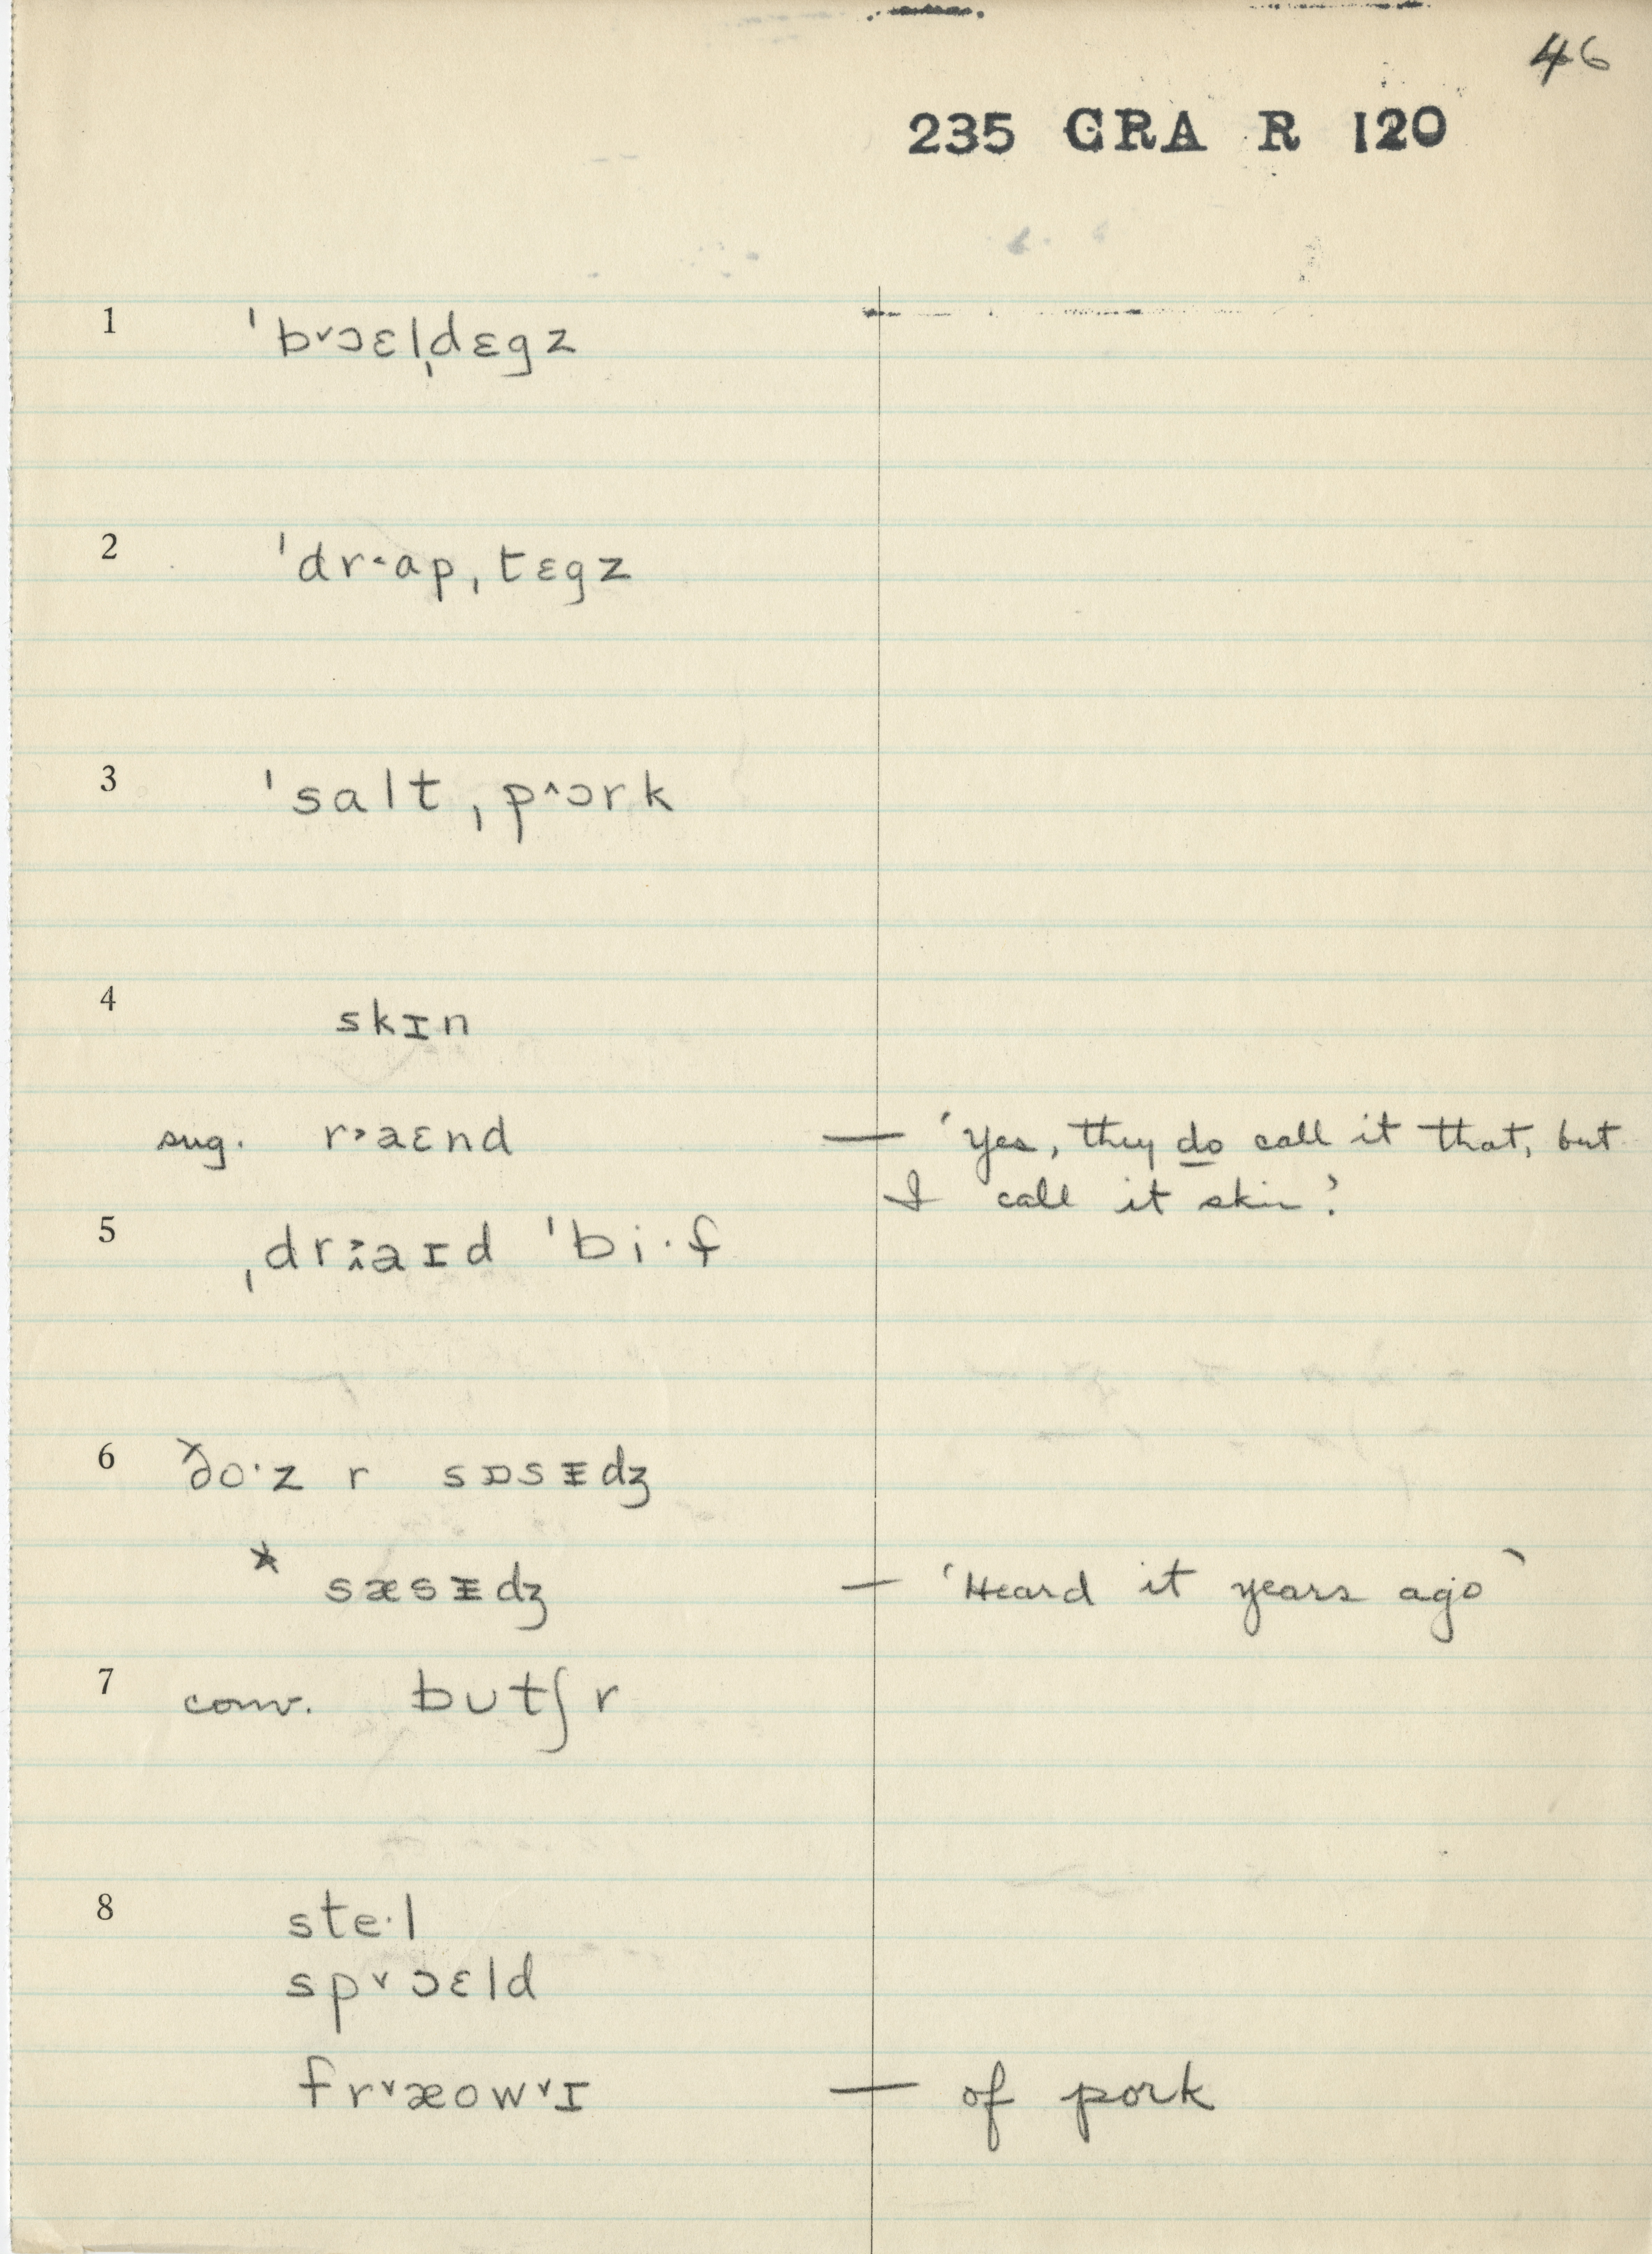 46
235 GRA R 120
1 ˈb˅ɔɛlˌdɛgz
2 ˈdr˂ap ˌtɛgz
3 ˈsalt ˌp˄ɔrk
4 skɪn
sug. r˃aɛnd — 'Yes, they do call it that, but
I call it skin.'
5 ˌdr˃˄aɪd ˈbi·f
6 ðo·z r sɒsᵻdʒ
* sæsᵻdʒ — 'Heard it years ago'
7 conv. butʃr
8 ste·l
sp˅ɔɛld
fr˅æow˅ɪ — of pork